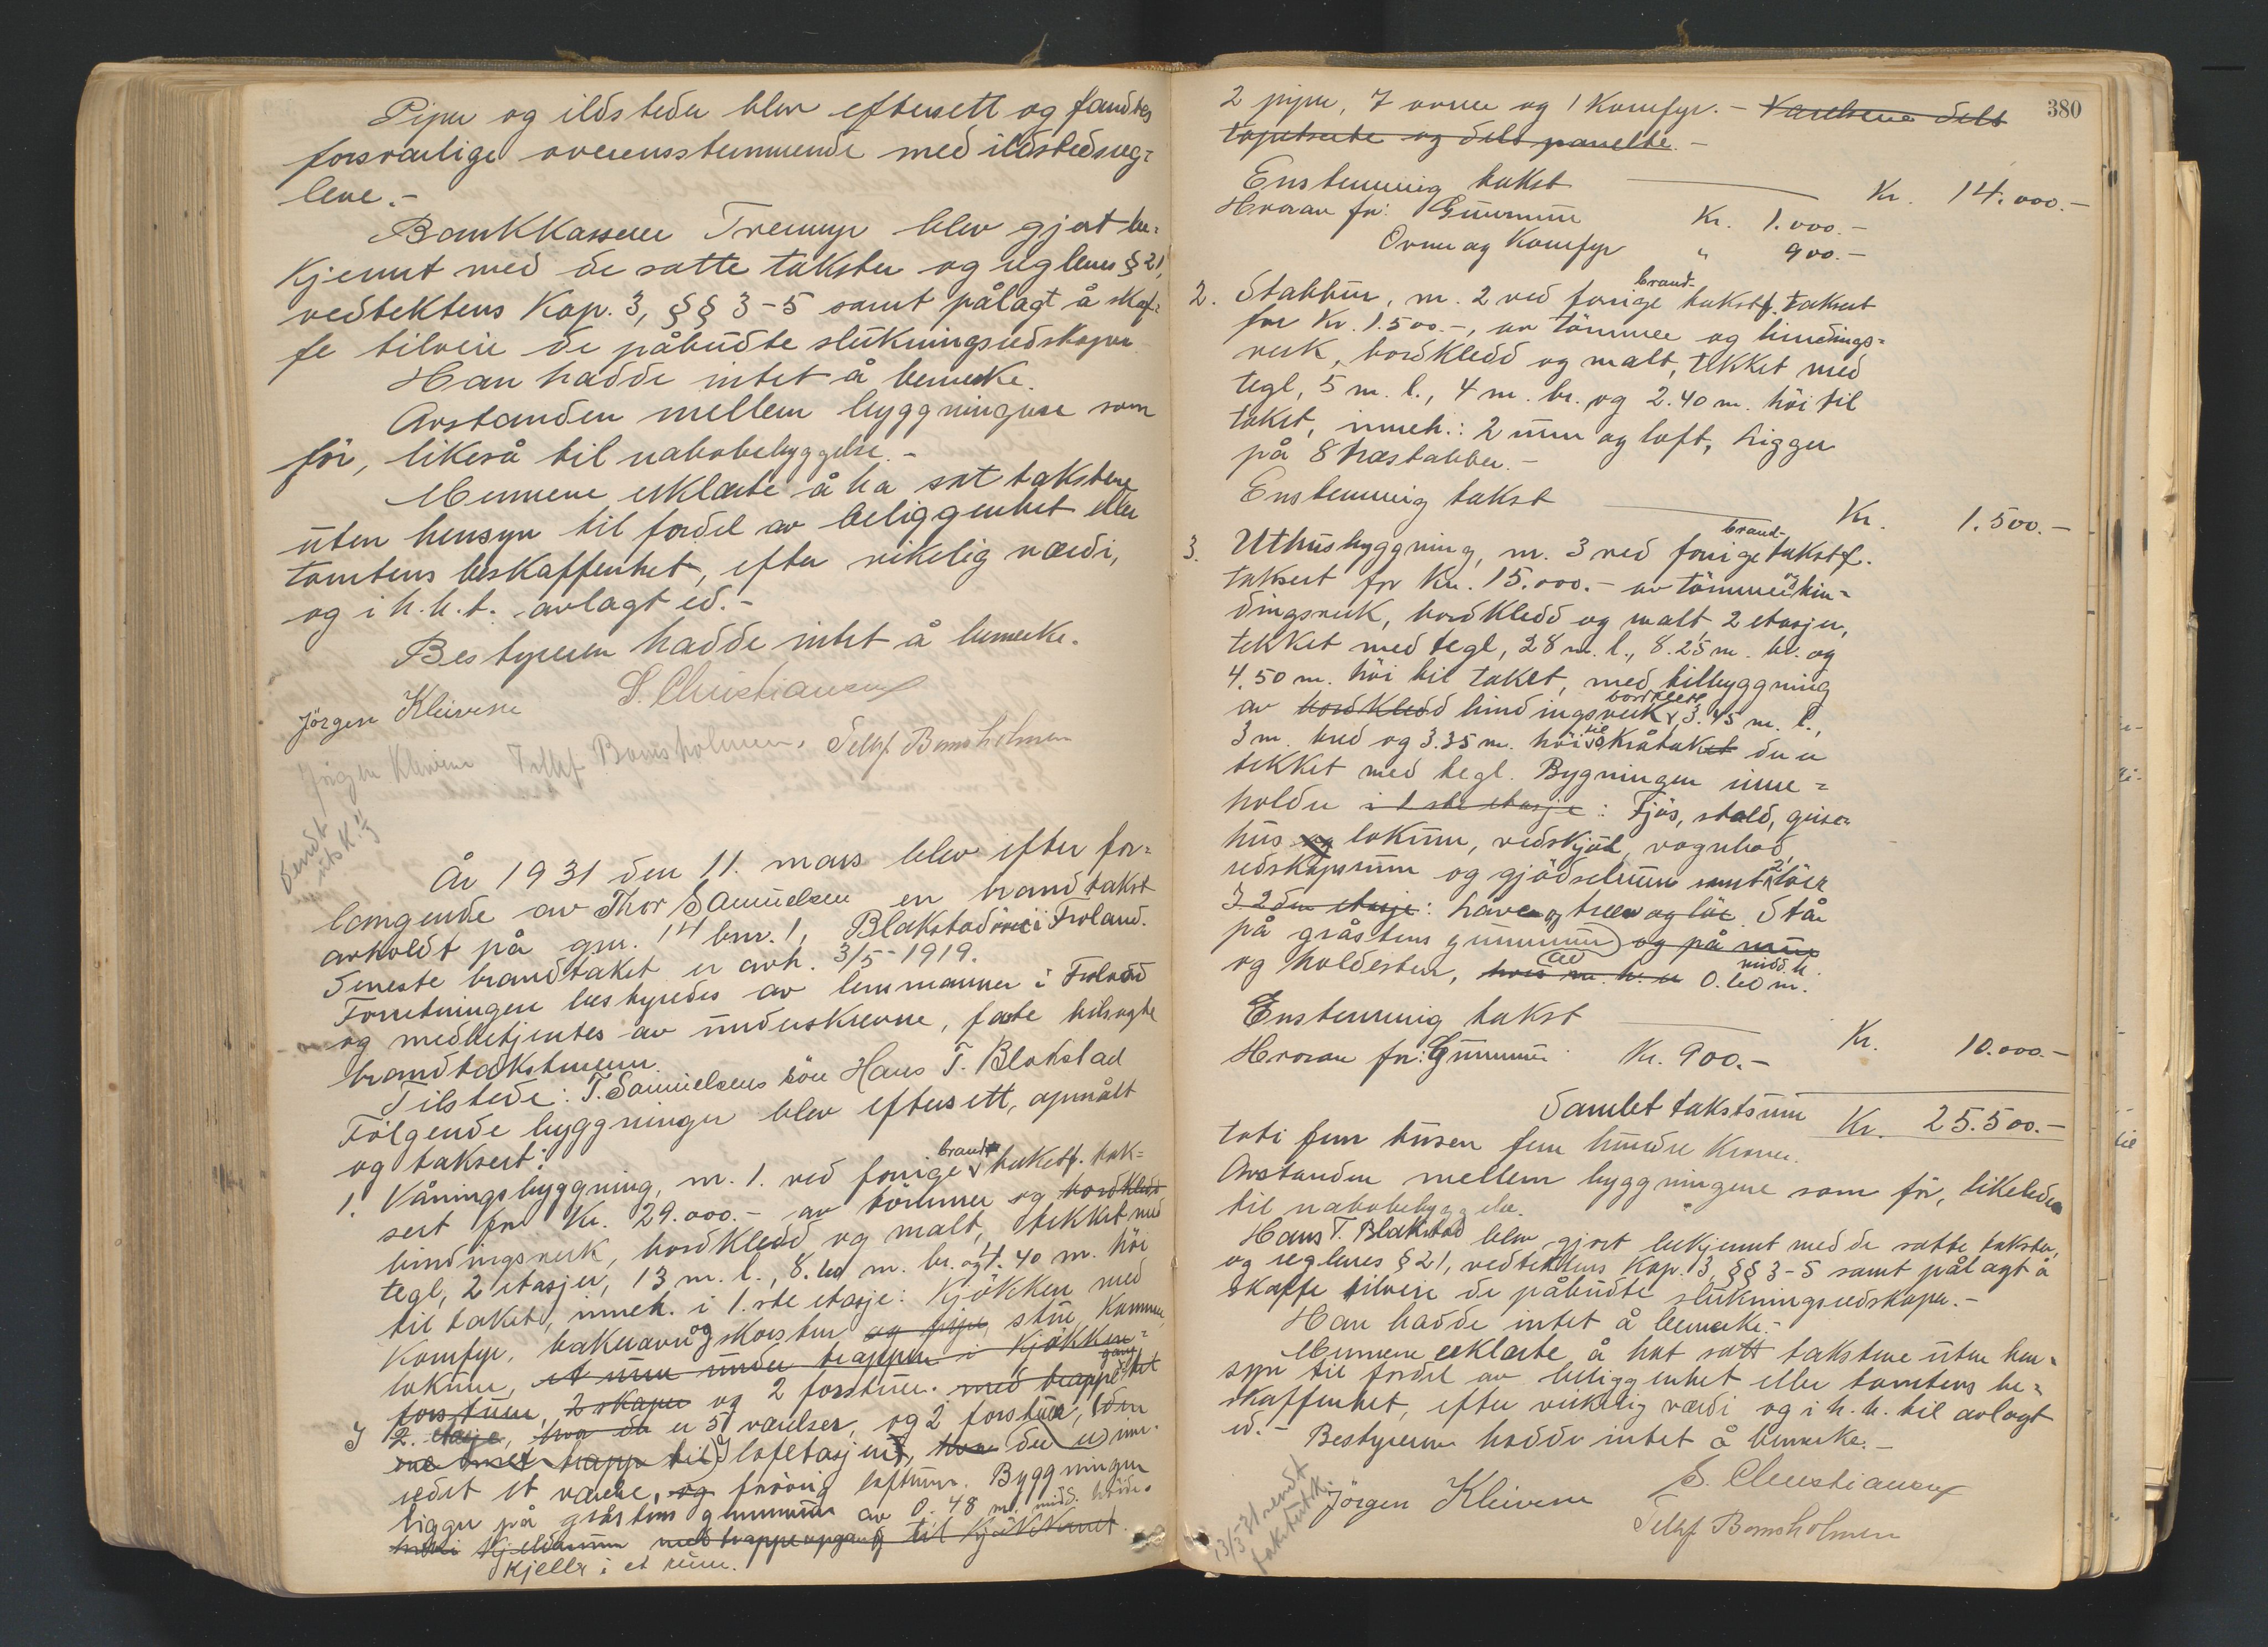 Piper og ildsteder blev efterset og fandtes
forsvarlige overensstemmende med ildstedsreg-
lene.-
Bankkasserer Tremyr blev gjort be-
kjennt med de satte takster og reglenes § 21,
vedtektens Kap. 3, §§ 3-5 samt pålagt å skaf-
fe tilveie de påbudte slukningsredskaper
Han hadde intet å bemerke.
Avstanden mellem byggningene som
før, likeså til nabobebyggelse.-
Mennene erklærte å ha sat takstene
uten hensyn til fordel av beliggenhet eller
tomtens beskaffenhet, efter virkelig værdi,
og i h.h.t. avlagt ed.-
Bestyreren hadde intet å bemerke.
Jörgen Kleivene S. Christiansen
Jörgen Kleivene Tellef Bomsholmen. Tellef Bomsholmen
Sendt utsk.
År 1931 den 11. mars blev efter for-
langende av Thor Samuelsen en brandtakst
avholdt på gnr. 14 bnr. 1, Blakstad i Froland.
Seneste brandtakst er avh. 3/5-1919.
Forretningen bestyredes av lensmannen i Froland
og medbetjentes av underskrevne, faste tilsagte
brandtakstmenn.
Tilstede: T. Samuelsens sön Hans T. Blakstad
Følgende byggninger blev eftersett, opmålt
og taksert:
1. Våningsbyggning, nr. 1. ved forrige brand takstf. tak-
sert for Kr. 29.000.- av tömmer og bordkledd
bindingsverk, bordkledd og malt, tekket med
tegl, 2 etasjer, 13 m. l., 8.60 m. br. og 4.40 m. höi
til taket, inneh. i 1.ste etasje: Kjökken med
Komfyr, bakerovn og skorsten og pipe, stue, Kammer,
lokum, et rum under trappen i Kjökken-
forstuen, 2 skaper og 2 forstuer. med trappe gang
I 2. etasje, hvor der er 5 værelser, og 2 forstuer,
til I loftetasjen, hvor der er inn-
redet et værelse, og forövrig loftrum. Byggningen
ligger på gråstens grunnmur av 0.48 m. midd. höide.
Kjelderrum med trappeopgang til Kjökkenet.
Kjeller i et rum.
380
2 piper, 7 ovner og 1 Komfyr.- Værelsene dels
tapetserte og dels panelte.-
Enstemmig takst Kr. 14.000.-
Hvorav for: Grunmur Kr. 1.000.-
Ovner og Komfyr " 900.-
2. Stabbur, nr. 2 ved forrige brand- takstf. taksert
for Kr. 1.500.-, av tömmer og bindings-
verk, bordkledd og malt, tekket med
tegl, 5 m. l., 4 m. br. og 2.40 m. höi til
taket, inneh.: 2 rum og loft, ligger
på 8 træstabber.-
Enstemmig takst Kr. 1.500.-
3. Uthusbyggning, nr. 3 ved forrige brand- takstf.
taksert for Kr. 15.000.- av tömmer og bin-
dingsverk, bordkledd og malt, 2 etasjer,
tekket med tegl, 28 m. l., 8.25 m. br. og
4.50 m. höi til taket, med tilbyggning
av bordkledd bindingsverk, bordkledt, 3.45 m. l.,
3 m. bred og 3.35 m. höi til skråtaket der er
tekket med tegl. Bygningen inne-
holder i 1 ste etasje: Fjös, stald, grise-
hus og lokum, vedskjul, vognbod,
redskapsrum og gjödselrum samt 2 löer
I 2den etasje: og löe. Står
på gråstens grunnmur og på mur
og holdesten, av hvis m. h. er 0.60 m. midd. h.
Enstemmig takst Kr. 10.000.-
Hvorav for: Grunmur Kr. 900.-
Samlet takstsum Kr. 25.500.-
toti fem tusen fem hundre Kroner.
Avstanden mellem byggningene som för, likeledes
til nabobebyggelse.
Hans T. Blakstad blev gjort bekjennt med de satte takster,
og reglenes § 21, vedtektens Kap. 3, §§ 3-5 samt pålagt å
skaffe tilveie de påbudte slukningsredskaper.-
Han hadde intet å bemerke.-
Mennene erklærte å hat satt takstene uten hen-
syn til fordel av beliggenhet eller tomtens be-
skaffenhet, efter virkelig værdi og i h.h. til avlagt
ed.- Bestyreren hadde intet å bemerke.-
Jörgen Kleivene S. Christiansen
Tellef Bomsholmen
13/3-31 sendt
takstutskr.